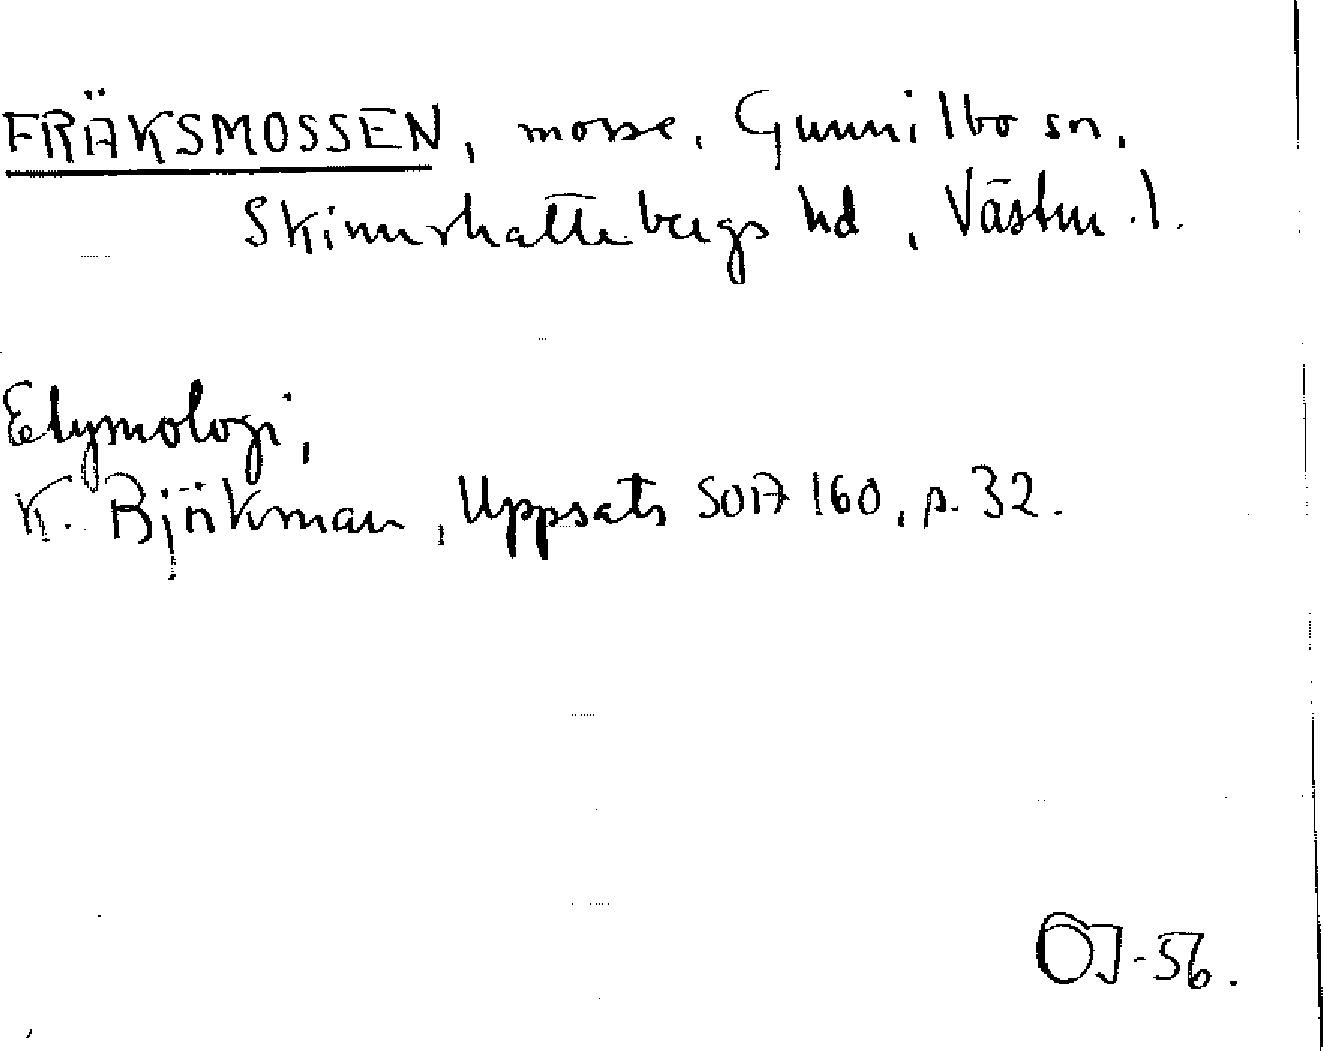 FRÄKSMOSSEN, mosse, Gunnilbo sn,
Skinnskattebergs hd, Västm.l.
Etymologi,
K. Björkman, Uppsats SOA 160, s. 32.
OJ-56.